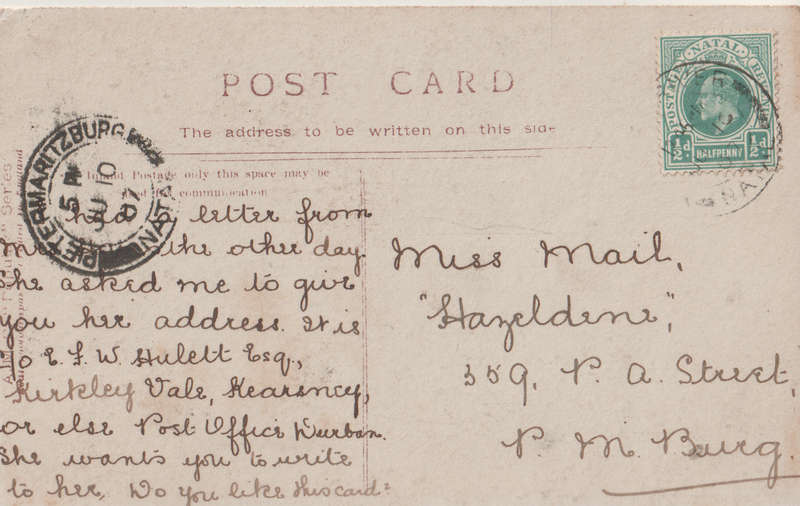 POST CARD
The address to be written on this side
Inland Postage only this space may be
for communication
Series
PIETERMARITZBURG
5 PM
JU 10
07
NATAL
POSTAGE NATAL REVENUE
½d HALFPENNY ½d
NATAL
I had a letter from
the other day.
She asked me to give
you her address. It is
To E. F. W. Hulett Esq.,
Kirkley Vale, Kearsney,
or else Post Office Durban.
She wants you to write
to her. Do you like this card?
Miss Mail,
"Hazeldene",
559, P. A. Street,
P. M. Burg.